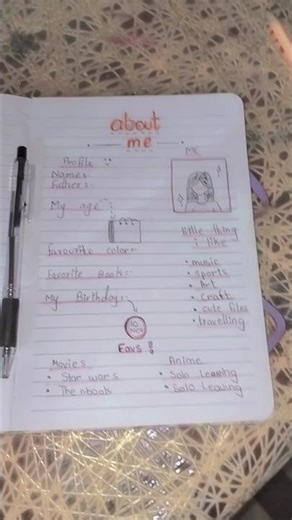 about
me
ME
Profile
Name:-
My age:-
little thing
i like
Favourite color:-
Favorite Book:-
My Birthday:-
• music
• sports
• Art
• craft
• cute files
• travelling
10
Favs !
Movies
• Star wars
• The nbook
Anime
• Solo Leaving
• Solo Leaving